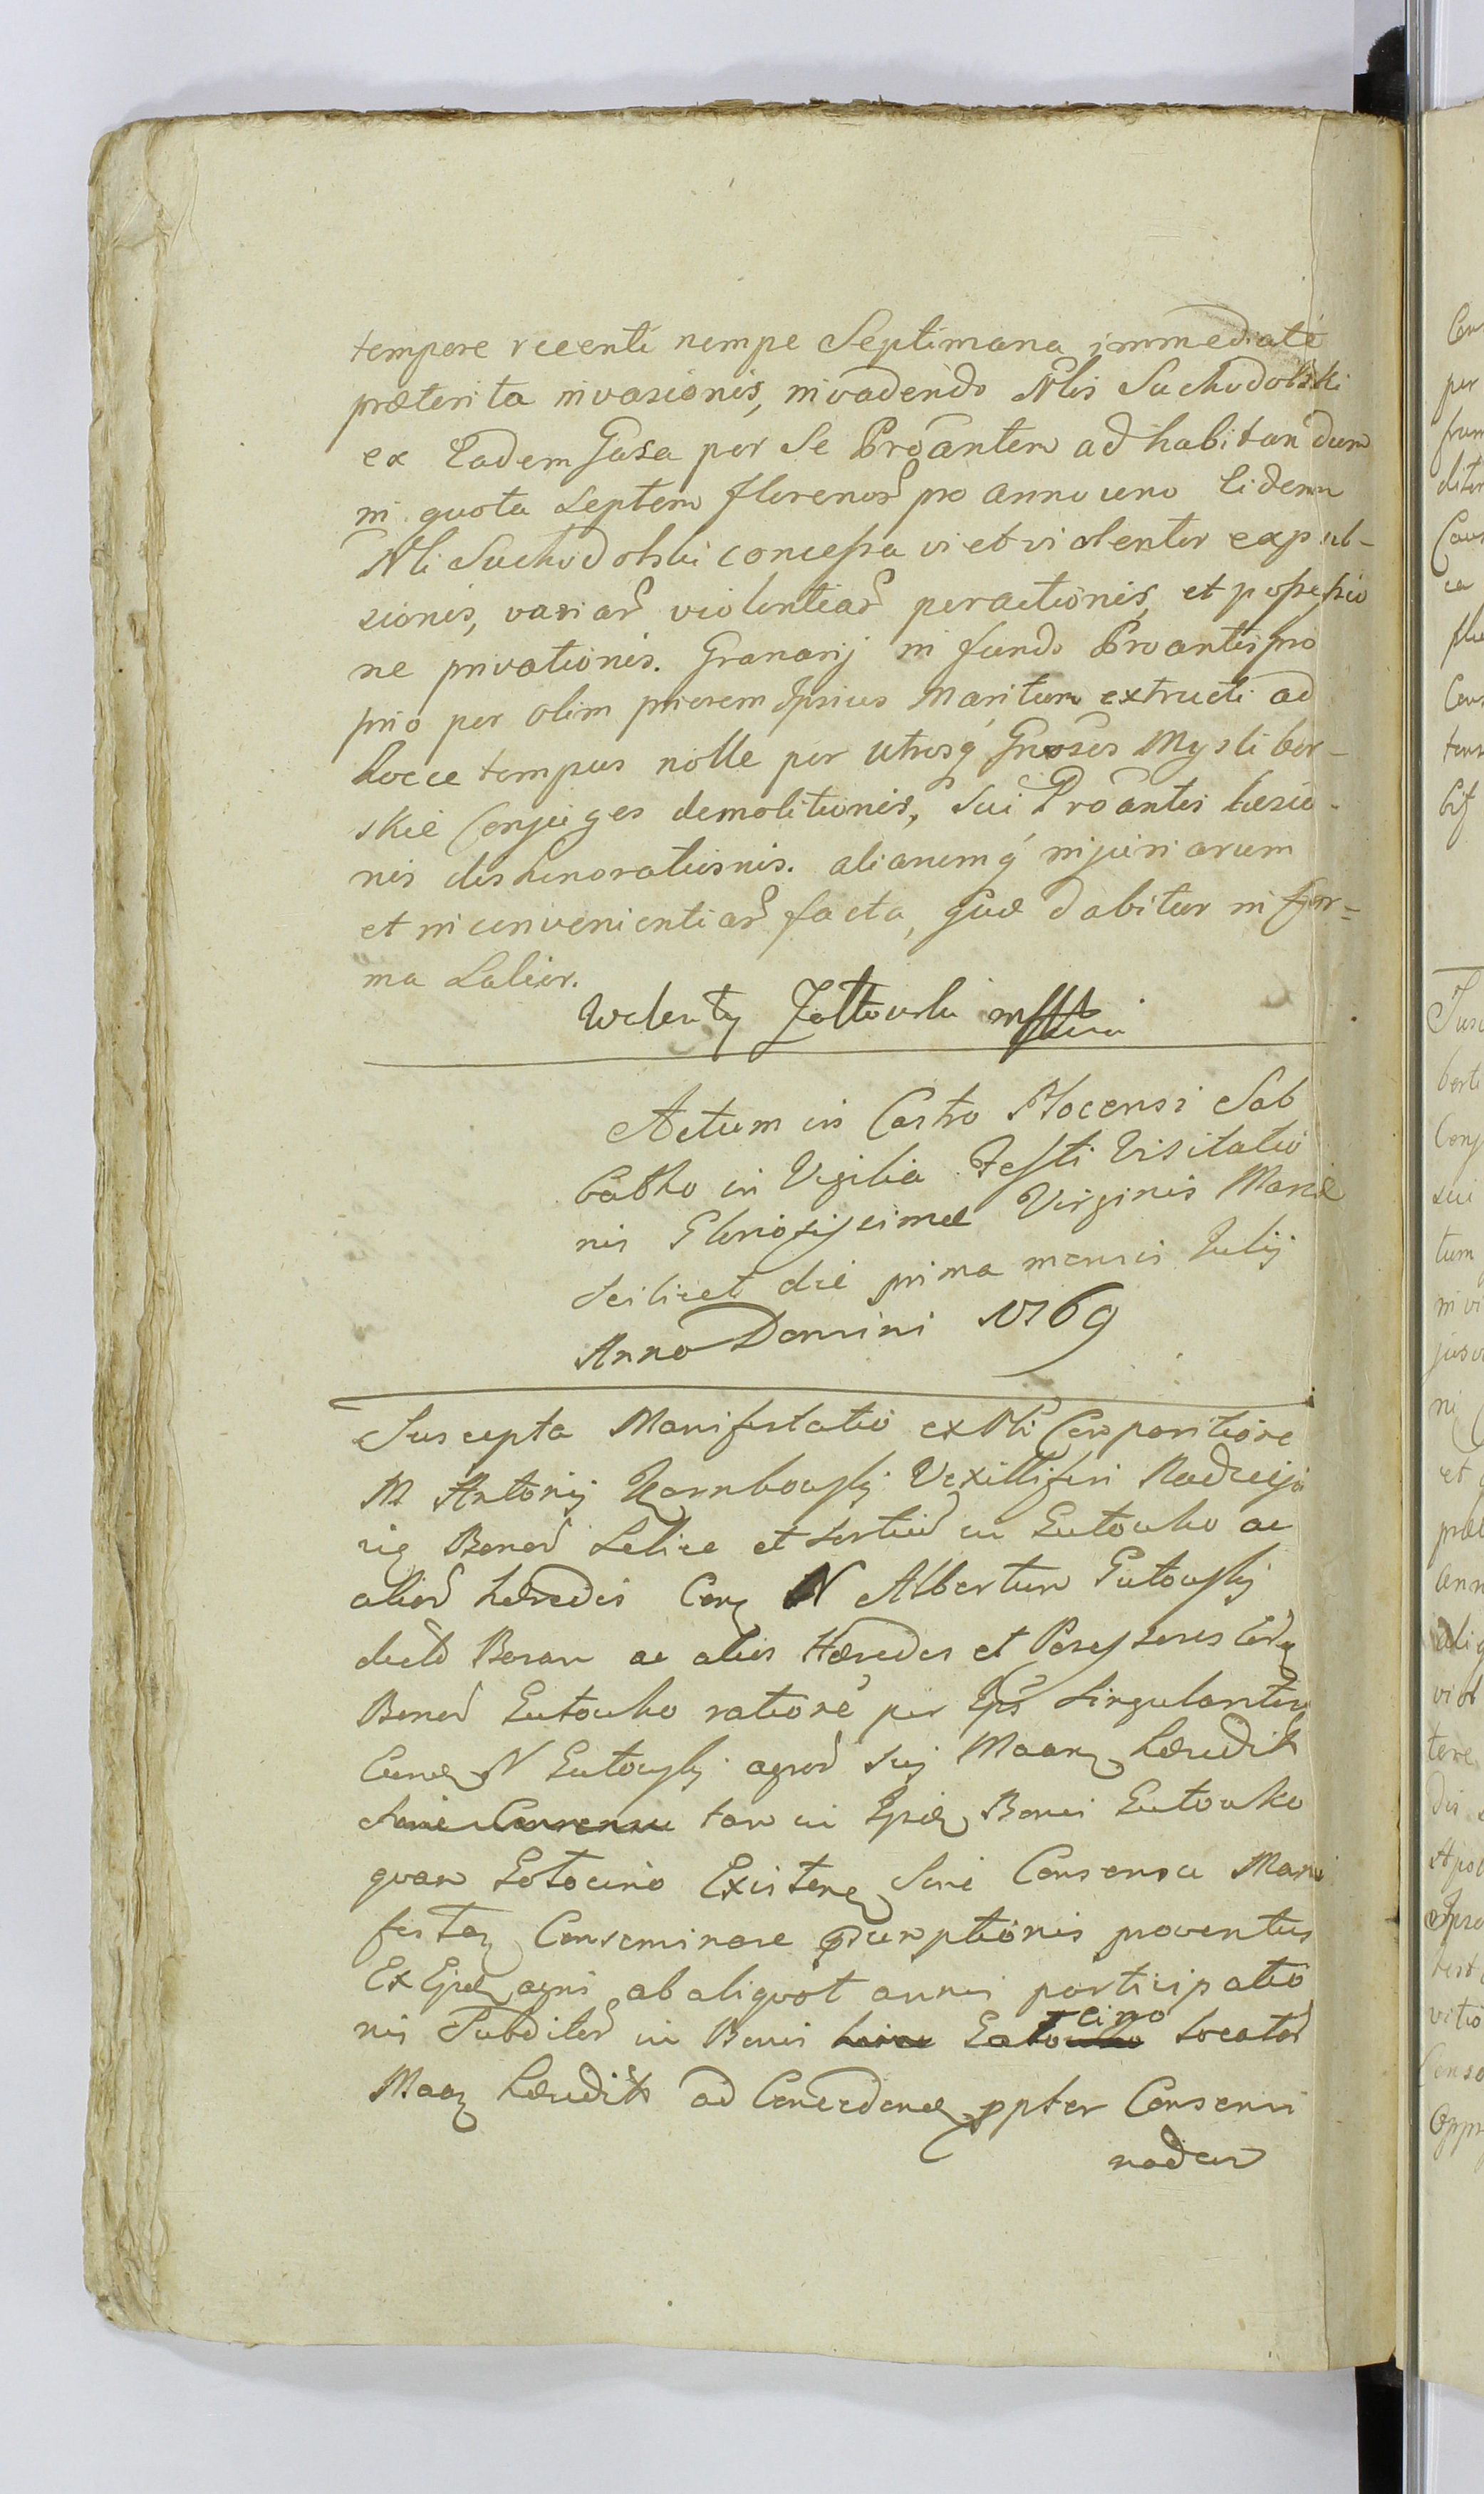 tempore recenti nempe Septimana immediaté
præterita invasionis, invadendo Nlis Suchodolski
ex Eadem Gasa per Se Proantem ad habitandum
in quota Septem florenor pro anno uno Eidem
Nli Suchodolski concessa vi et violenter expul-
sionis, variar violentiar peractionis, et possessio
ne privationis. Granarij in fundo Proantis pro
prio per olim priorem Ipsius Maritum extructi ad
hocce tempus nolle per utrosq Gnosos Mysliber-
skie Conjuges demolitionis, Sui Proantis læsio-
nis dishonorationis. aliarumq injuriarum
et inconvenientiar facta, quæ dabitur in for=
ma Latior.
Walenty Zołtowski
Actum in Castro Plocensi Sab
batho in Vigilia Festi Visitatio
nis Gloriosissimæ Virginis Mariæ
Scilicet die prima mensis Julij
Anno Domini 1769
Suscepta Manifestatio ex Pti Comparitione
M Antonij Vexilliferi
Bonor et Sortiu in Gutowko ac
alior hæredis Con N Albertum Gutowskj
dicto Baran ac alios Hæredes et Possessores
Bonor Gutowko ratione per Ips Singulariter
N Gutowskj agror suj hæredit
Sine Consensu tam in Bonis Gutowko
quam Gotocino Existen Sine Consensu Mani
festan Conseminare proventus
Ex agri ab aliquot annis participatio
nis Subditor in Bonis cino locator
hæredit ad ppter Consemi
nadum